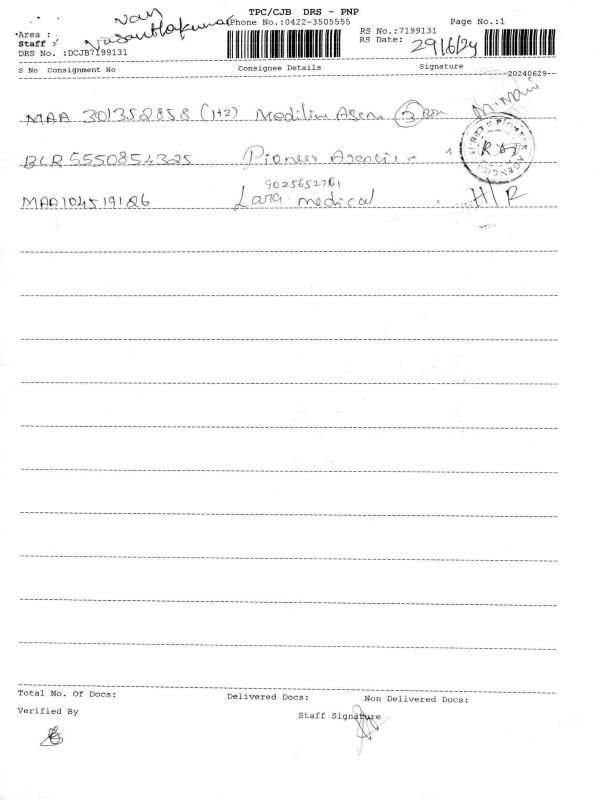 TPC/CJB DRS - PNP
Van
Area : Phone No.:0422-3505555 Page No.:1
Staff : Vasanthakumar RS No.:7199131
DRS No. :DCJB7199131 RS Date: 29/6/24
S No Consignment No Consignee Details Signature
--20240629--
MAA 301352858 (1+2) Mediline Agen 3 Box
BLR5550854325 Pioneer Agencies
PIONEER AGENCIES
9025652701
MAA104519126 Lara medical H/R
Total No. Of Docs: Delivered Docs: Non Delivered Docs:
Verified By
Staff Signature